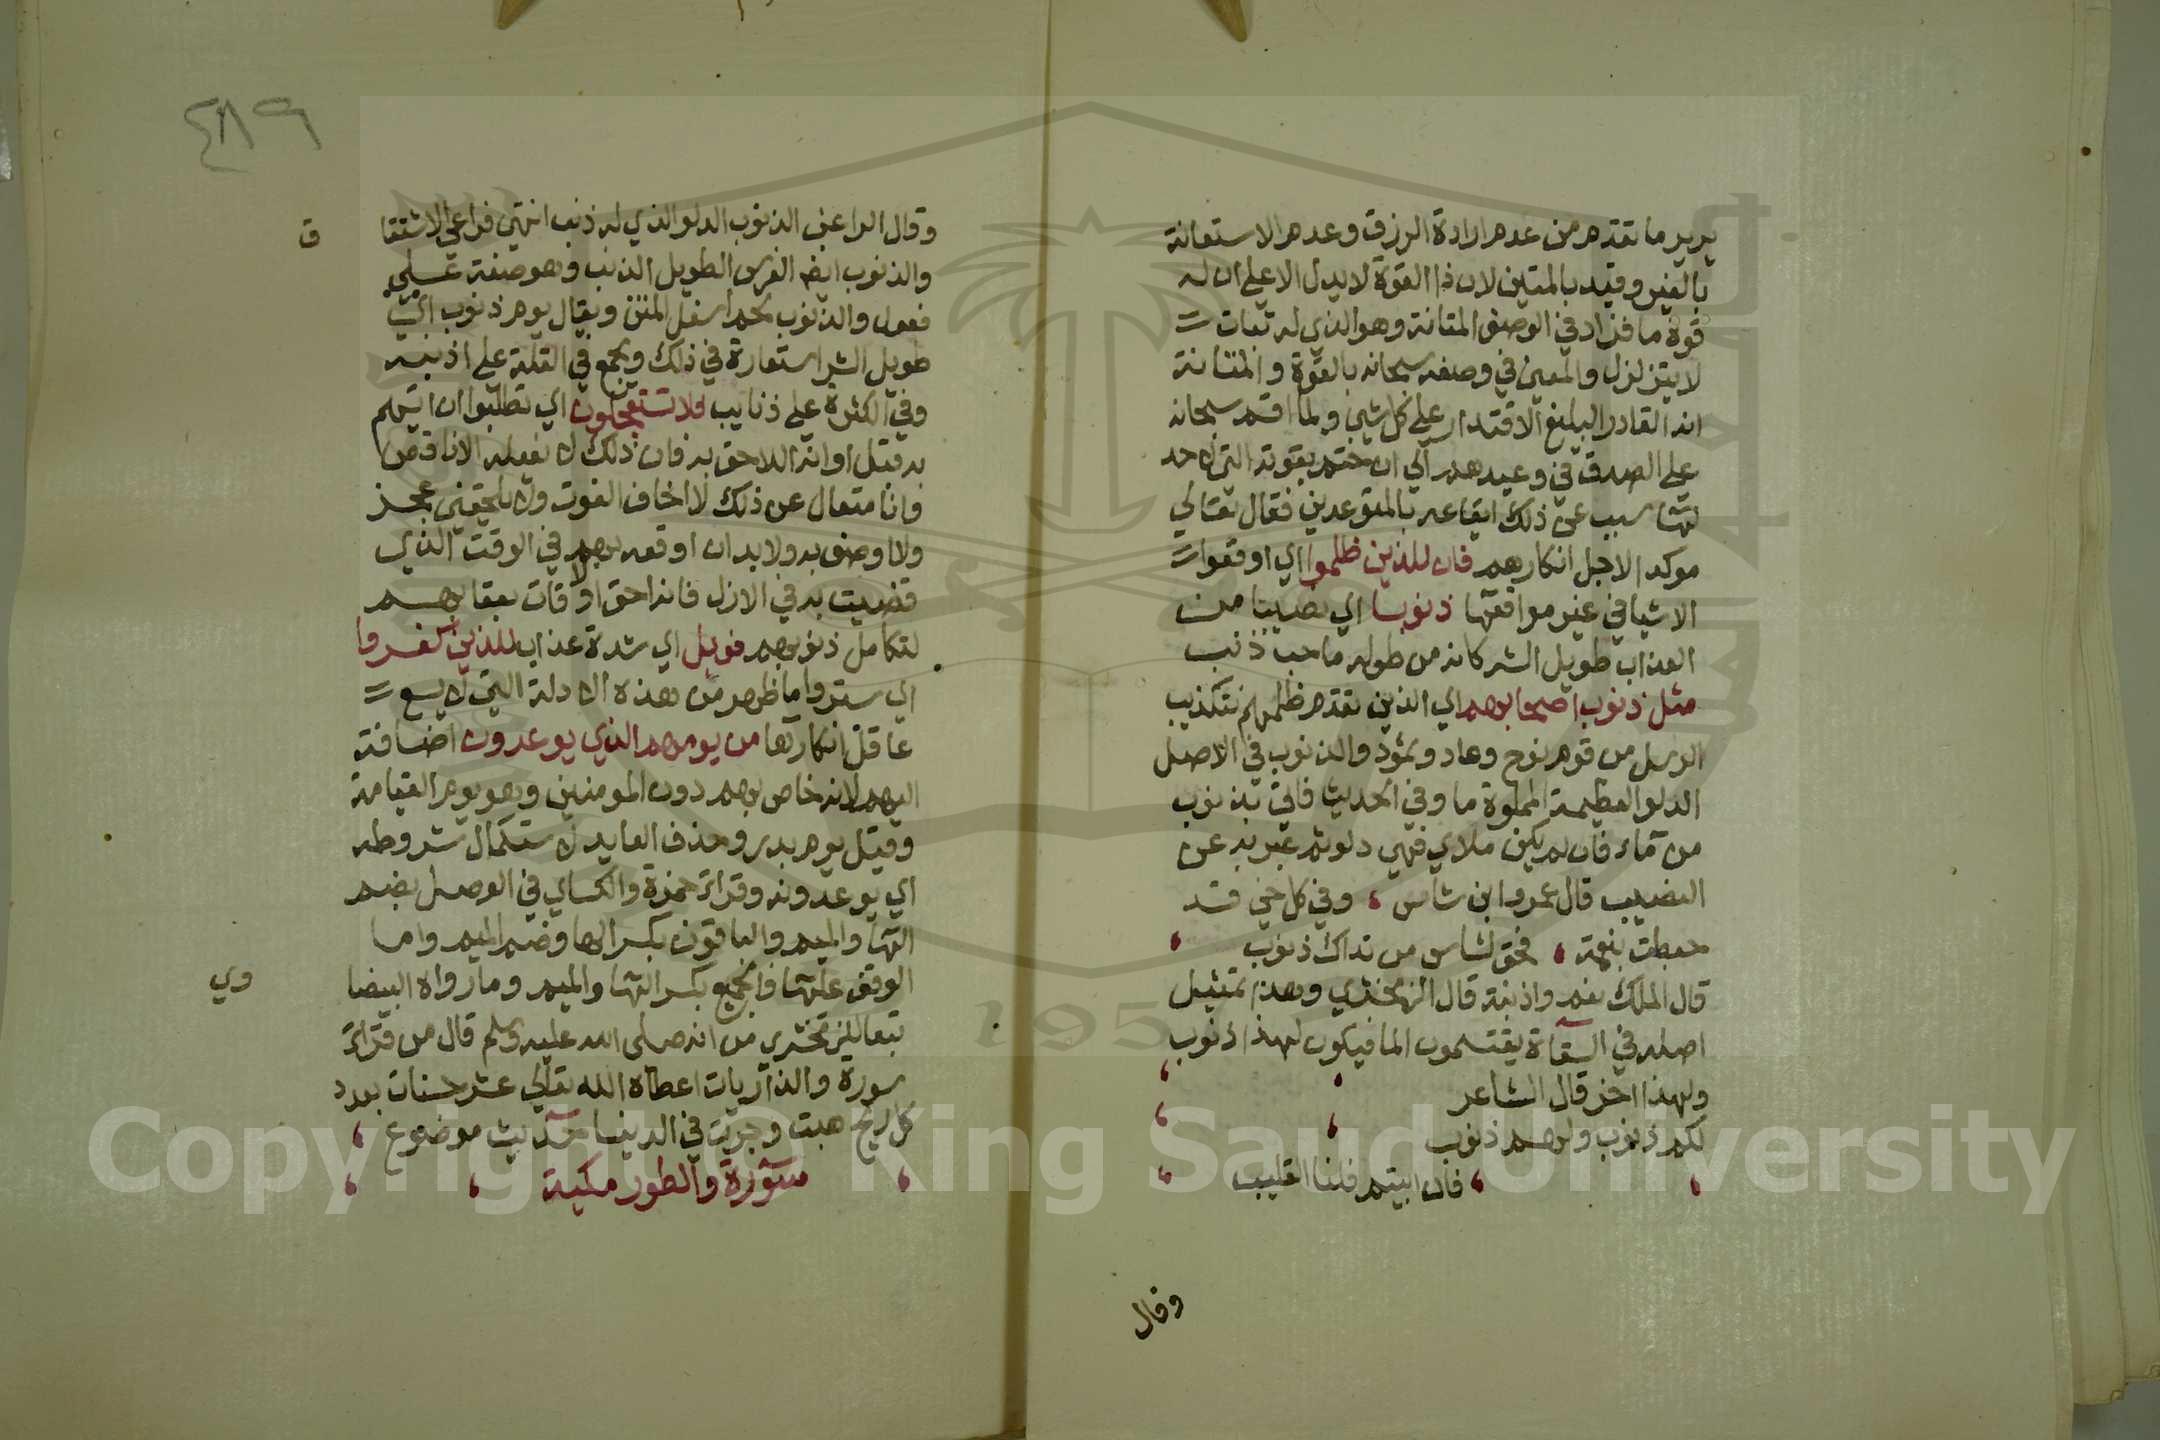 يريد ما تقدم من عدم ارادة الرزق وعدم الاستعانة
بالغير وقيد بالمتين لان ذا القوة لا يدل الا علي ان له
قوة ما فزاد في الوصف المتانة وهو الذي له ثبات
لا يتزلزل والمعين في وصفه سبحانه بالقوة والمتانة
انه القادر البليغ الاقتدار علي كل شي ولما اقسم سبحانه
علي الصدق في وعيدهم الي ان ختم بقوته التي لا حد
لها سبب عن ذلك ايقاعه بالمتوعدين فقال تعالي
موكدا لاجل انكارهم فان للذين ظلموا اي اوقعوا
الاشيا في غير مواقعها ذنوبا اي نصيبا من
العذاب طويل الشر كانه من طوله صاحب ذنب
مثل ذنوب اصحابهم اي الذين تقدم ظلمهم بتكذيب
الرسل من قوم نوح وعاد وثمود والذنوب في الاصل
الدلو العظيمة المملوة ما وفي الحديث فاتي بذنوب
من ماء فان لم يكن ملاي فهي دلو ثم عبر به عن
النصيب قال عمرو ابن شاس وفي كل حي قد
خبطت بنعمة فحق لشاس من نداك ذنوب
قال الملك نعم واذنبة قال الزمخشري وهذا تمثيل
اصله في السقاة يقتسمون الما فيكون لهذا ذنوب
ولهذا اخر قال الشاعر
لكم ذنوب ولهم ذنوب
فان ابيتم فلنا القليب
وقال
٤٨٩
وقال الراغب الذنوب الدلو الذي له ذنب انتهي فراعي الاشتقا
ق
والذنوب ايضا الفرس الطويل الذنب وهو صفة علي
فعول والذنوب لحم اسفل المتن ويقال يوم ذنوب اي
طويل الشر استعارة في ذلك ويجمع في القلة علي اذنبه
وفي الكثرة علي ذنايب فلا تستعجلون اي تطلبوا ان اتيهم
به قبل اوانه اللاحق به فان ذلك لا يفعله الا ناقص
وانا متعال عن ذلك لا اخاف الفوت ولا يلحقني عجز
ولا اوصف به ولا بد ان اوقعه بهم في الوقت الذي
قضيت به في الازل فانه احق الاوقات بعقابهم
لتكامل ذنوبهم فويل اي شدة عذاب للذين كفروا
اي ستروا ما ظهر من هذه الادلة التي لا يسع
عاقل انكارها من يومهم الذي يوعدون اضافة
اليهم لانه خاص بهم دون المومنين وهو يوم القيامة
وقيل يوم بدر وحذف العايد لاستكمال شروطه
اي يوعدونه وقراء حمزة والكساي في الوصل بضم
الها والميم والباقون بكسر الها وضم الميم واما
الوقف عليها فالجميع بكسر الها والميم وما رواه البيضا
وي
تبعا للزمخشري من انه صلى الله عليه وسلم قال من قراء
سورة والذاريات اعطاه الله تعالي عشر حسنات بعدد
كل ريح هبت وجرت في الدنيا حديث موضوع
سورة والطور مكية
Copyright © King Saud University
1957